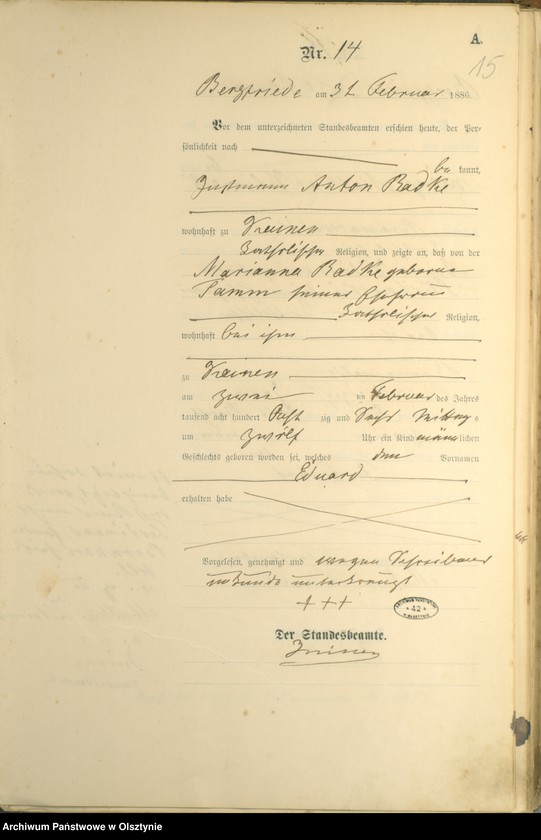 A.
Nr. 14
15
Bergfriede am 3 Februar 1886.
Vor dem unterzeichneten Standesbeamten erschien heute, der Per-
sönlichkeit nach
be kannt,
Anton Radke
wohnhaft zu
katholischer Religion, und zeigte an, daß von der
Marianna Radke geborene
Tamm seiner Ehefrau
katholischer Religion,
wohnhaft bei ihm
zu
am zwei ten Februar des Jahres
tausend acht hundert acht zig und sechs Mittags
um zwölf Uhr ein Kind männlichen
Geschlechts geboren worden sei, welches den Vornamen
Eduard
erhalten habe
Vorgelesen, genehmigt und wegen Schreibens
unkunde unterkreuzt
+++
42
Der Standesbeamte.
Archiwum Państwowe w Olsztynie